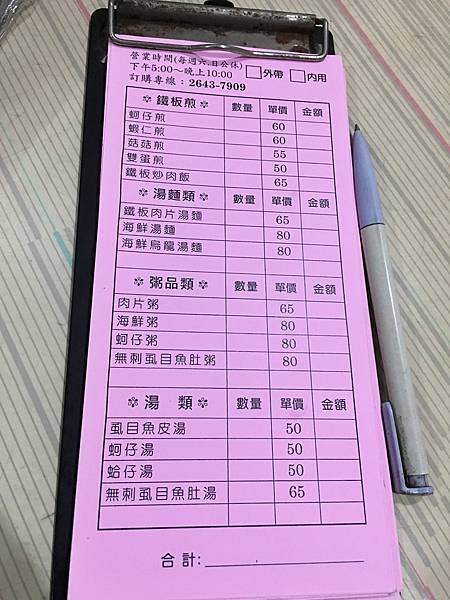 營業時間(每週六.日公休)
下午5:00～晚上10:00 □外帶 □內用
訂購專線：2643-7909
✾ 鐵板煎 ✾ 數量 單價 金額
蚵仔煎 60
蝦仁煎 60
菇菇煎 55
雙蛋煎 50
鐵板炒肉飯 65
✾ 湯麵類 ✾ 數量 單價 金額
鐵板肉片湯麵 65
海鮮湯麵 80
海鮮烏龍湯麵 80
✾ 粥品類 ✾ 數量 單價 金額
肉片粥 65
海鮮粥 80
蚵仔粥 80
無刺虱目魚肚粥 80
✾ 湯 類 ✾ 數量 單價 金額
虱目魚皮湯 50
蚵仔湯 50
蛤仔湯 50
無刺虱目魚肚湯 65
合計: